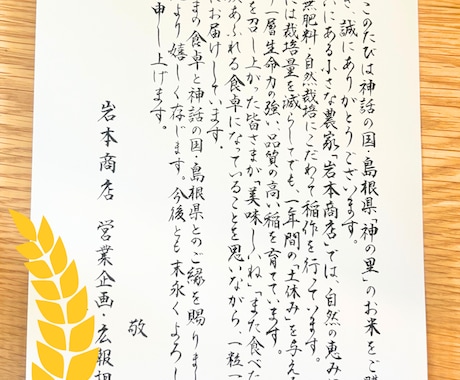 このたびは神話の国、島根県「神の里」のお米をご購
、誠にありがとうございます。
にある小さな農家「岩本商店」では、自然の恵み
然肥料・自然栽培にこだわって稲作を行っています。
には栽培量を減らしてでも、一年間の「土休み」を与え
り一層生命力の強い、品質の高い稲を育てています。
を召し上がった皆さまが「美味しいね」「また食べた
あふれる食卓になっていることを思いながら、一粒一
にお届けしています。
まの食卓と神話の国・島根県とのご縁を賜りまし
より嬉しく存じます。今後とも末永くよろし
申し上げます。
敬
岩本商店 営業企画・広報担